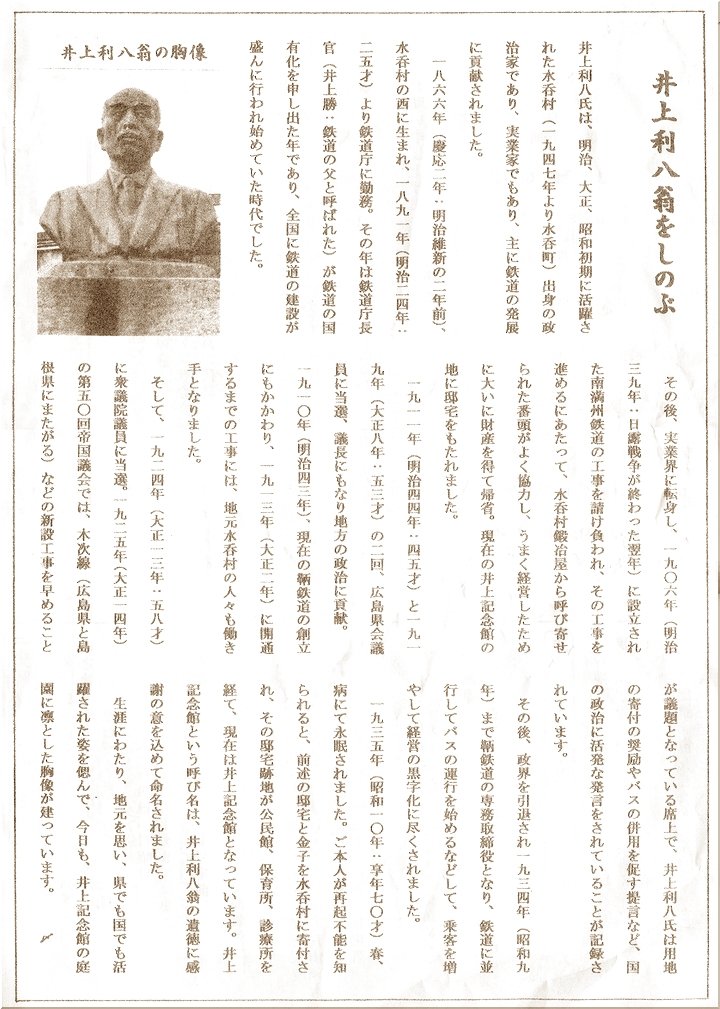 井上利八翁をしのぶ
井上利八翁の胸像
井上利八氏は、明治、大正、昭和初期に活躍さ
れた水呑村（一九四七年より水呑町）出身の政
治家であり、実業家でもあり、主に鉄道の発展
に貢献されました。
一八六六年（慶応二年：明治維新の二年前）、
水呑村の西に生まれ、一八九一年（明治二四年：
二五才）より鉄道庁に勤務。その年は鉄道庁長
官（井上勝：鉄道の父と呼ばれた）が鉄道の国
有化を申し出た年であり、全国に鉄道の建設が
盛んに行われ始めていた時代でした。
その後、実業界に転身し、一九〇六年（明治
三九年：日露戦争が終わった翌年）に設立され
た南満州鉄道の工事を請け負われ、その工事を
進めるにあたって、水呑村鍛冶屋から呼び寄せ
られた番頭がよく協力し、うまく経営したため
に大いに財産を得て帰省。現在の井上記念館の
地に邸宅をもたれました。
一九一一年（明治四四年：四五才）と一九一
九年（大正八年：五三才）の二回、広島県会議
員に当選、議長にもなり地方の政治に貢献。
一九一〇年（明治四三年）、現在の鞆鉄道の創立
にもかかわり、一九一三年（大正二年）に開通
するまでの工事には、地元水呑村の人々も働き
手となりました。
そして、一九二四年（大正一三年：五八才）
に衆議院議員に当選。一九二五年（大正一四年）
の第五〇回帝国議会では、木次線（広島県と島
根県にまたがる）などの新設工事を早めること
が議題となっている席上で、井上利八氏は用地
の寄付の奨励やバスの併用を促す提言など、国
の政治に活発な発言をされていることが記録さ
れています。
その後、政界を引退され一九三四年（昭和九
年）まで鞆鉄道の専務取締役となり、鉄道に並
行してバスの運行を始めるなどして、乗客を増
やして経営の黒字化に尽くされました。
一九三五年（昭和一〇年：享年七〇才）春、
病にて永眠されました。ご本人が再起不能を知
られると、前述の邸宅と金子を水呑村に寄付さ
れ、その邸宅跡地が公民館、保育所、診療所を
経て、現在は井上記念館となっています。井上
記念館という呼び名は、井上利八翁の遺徳に感
謝の意を込めて命名されました。
生涯にわたり、地元を思い、県でも国でも活
躍された姿を偲んで、今日も、井上記念館の庭
園に凛とした胸像が建っています。